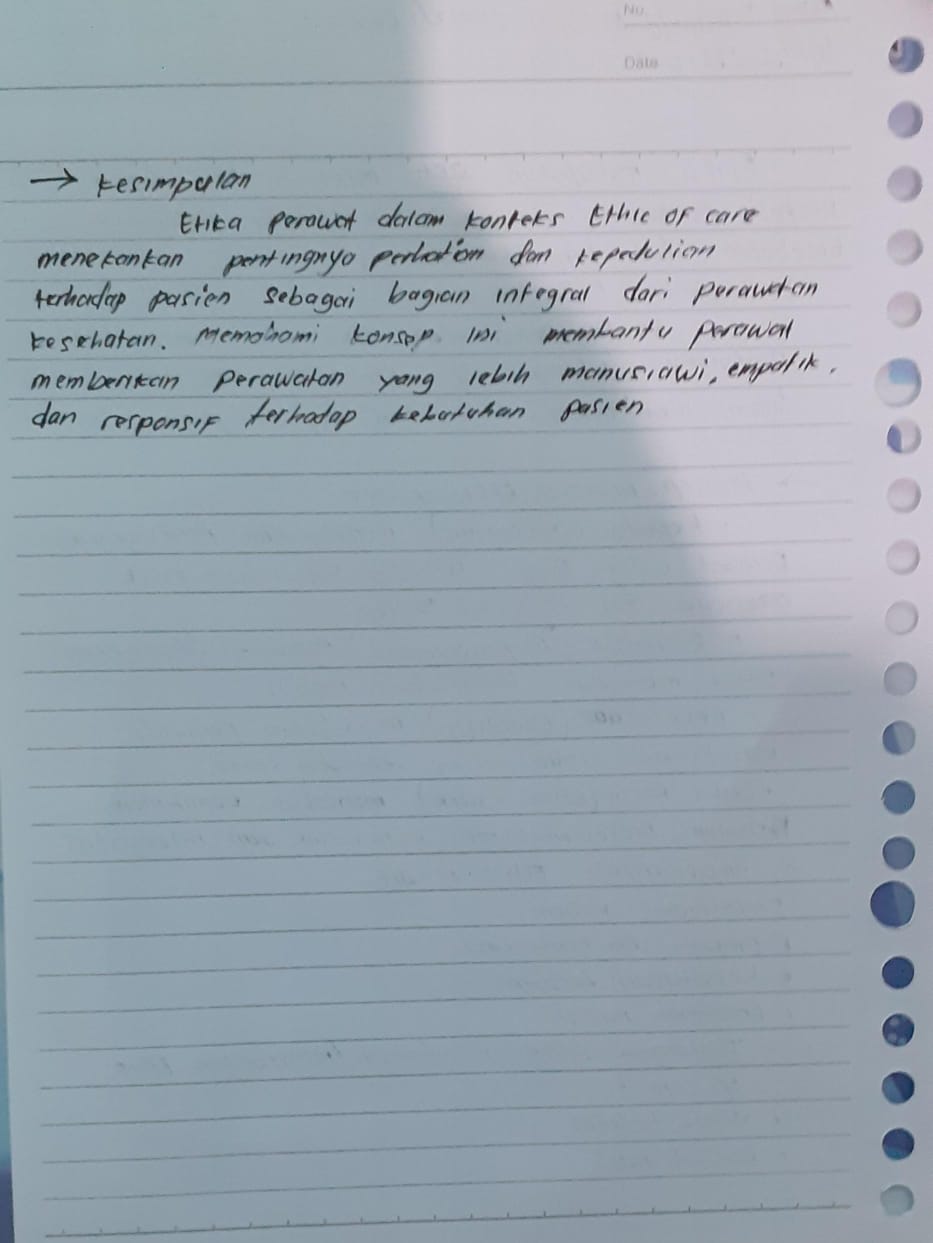 No.
Date
→ Kesimpulan
Etika perawat dalam konteks Ethic of care
menekankan pentingnya perhatian dan kepedulian
terhadap pasien sebagai bagian integral dari perawatan
kesehatan. Memahami konsep ini membantu perawat
memberikan perawatan yang lebih manusiawi, empatik,
dan responsif terhadap kebutuhan pasien